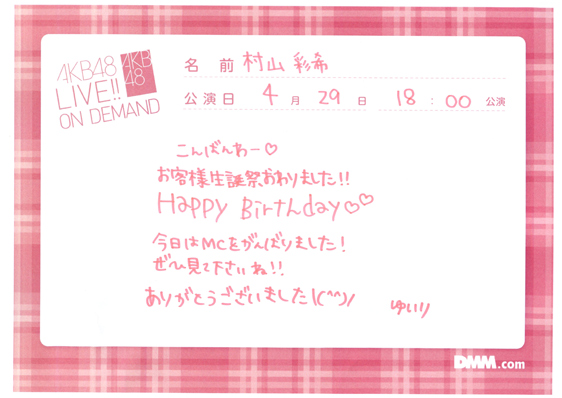 AKB48
LIVE!!
ON DEMAND
AKB
48
名 前 村山 彩希
公演日 4 月 29 日 18 : 00 公演
こんばんわー♡
お客様生誕祭おわりました!!
Happy Birthday♡♡
今日はMCをがんばりました!
ぜひ見て下さいね!!
ありがとうございました\(^^)/
ゆいり
DMM.com